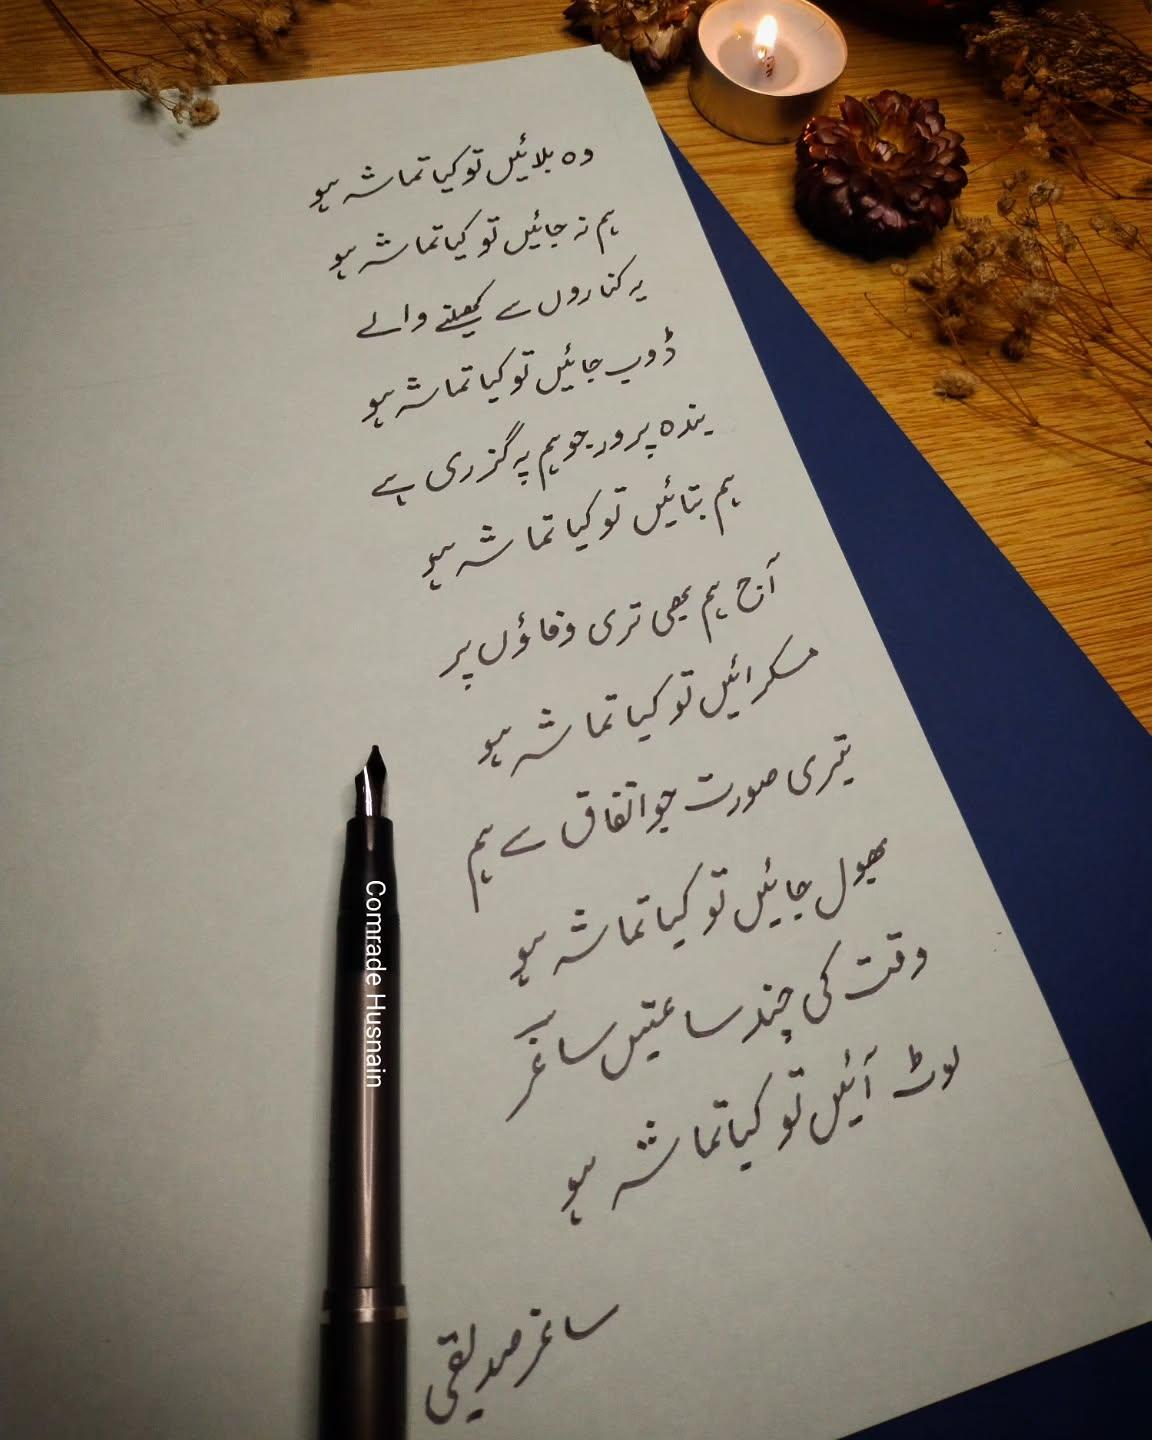 وہ بلائیں تو کیا تماشہ ہو
ہم نہ جائیں تو کیا تماشہ ہو
یہ کناروں سے کھیلنے والے
ڈوب جائیں تو کیا تماشہ ہو
بندہ پرور جو ہم پہ گزری ہے
ہم بتائیں تو کیا تماشہ ہو
آج ہم بھی تری وفاؤں پر
مسکرائیں تو کیا تماشہ ہو
تیری صورت جو اتفاق سے ہم
بھول جائیں تو کیا تماشہ ہو
وقت کی چند ساعتیں ساغر
لوٹ آئیں تو کیا تماشہ ہو
ساغر صدیقی
Comrade Husnain